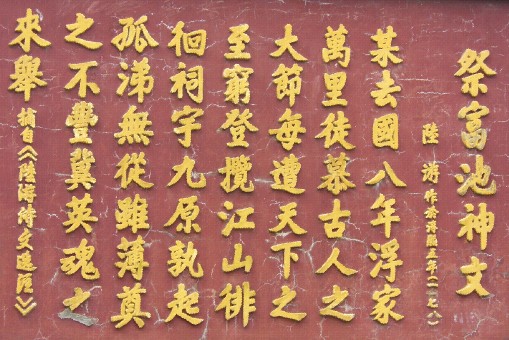 祭富池神文
陸游 作於淳熙五年(一一七八)
某去國八年浮家
萬里徒慕古人之
大節每遭天下之
至窮登攬江山徘
徊祠宇九原孰起
孤涕無從雖薄奠
之不豐冀英魂之
來舉 摘自《陸游詩文選》